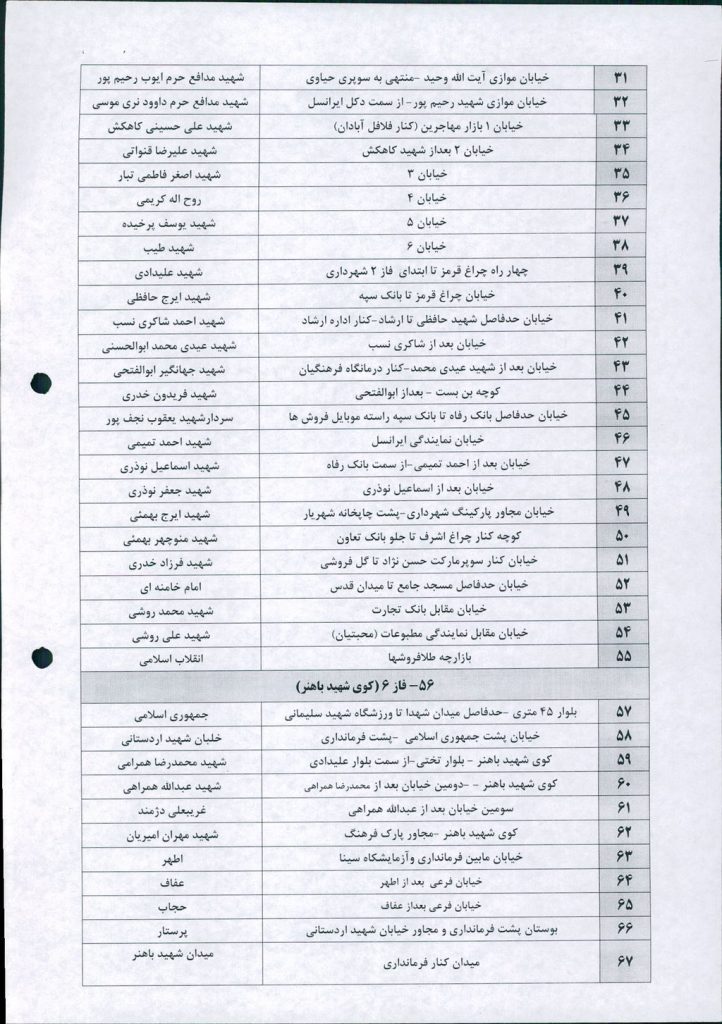 ۳۱ خیابان موازی آیت الله وحید -منتهی به سوپری حیاوی شهید مدافع حرم ایوب رحیم پور
۳۲ خیابان موازی شهید رحیم پور- از سمت دکل ایرانسل شهید مدافع حرم داوود نری موسی
۳۳ خیابان ۱ بازار مهاجرین (کنار فلافل آبادان) شهید علی حسینی کاهکش
۳۴ خیابان ۲ بعداز شهید کاهکش شهید علیرضا قنواتی
۳۵ خیابان ۳ شهید اصغر فاطمی تبار
۳۶ خیابان ۴ روح اله کریمی
۳۷ خیابان ۵ شهید یوسف پرخیده
۳۸ خیابان ۶ شهید طیب
۳۹ چهار راه چراغ قرمز تا ابتدای فاز ۲ شهرداری شهید علیدادی
۴۰ خیابان چراغ قرمز تا بانک سپه شهید ایرج حافظی
۴۱ خیابان حدفاصل شهید حافظی تا ارشاد-کنار اداره ارشاد شهید احمد شاکری نسب
۴۲ خیابان بعد از شاکری نسب شهید عیدی محمد ابوالحسنی
۴۳ خیابان بعد از شهید عیدی محمد-کنار درمانگاه فرهنگیان شهید جهانگیر ابوالفتحی
۴۴ کوچه بن بست - بعداز ابوالفتحی شهید فریدون خدری
۴۵ خیابان حدفاصل بانک رفاه تا بانک سپه راسته موبایل فروش ها سردارشهید یعقوب نجف پور
۴۶ خیابان نمایندگی ایرانسل شهید احمد تمیمی
۴۷ خیابان بعد از احمد تمیمی-از سمت بانک رفاه شهید اسماعیل نوذری
۴۸ خیابان بعد از اسماعیل نوذری شهید جعفر نوذری
۴۹ خیابان مجاور پارکینگ شهرداری-پشت چاپخانه شهریار شهید ایرج بهمئی
۵۰ کوچه کنار چراغ اشرف تا جلو بانک تعاون شهید منوچهر بهمئی
۵۱ خیابان کنار سوپرمارکت حسن نژاد تا گل فروشی شهید فرزاد خدری
۵۲ خیابان حدفاصل مسجد جامع تا میدان قدس امام خامنه ای
۵۳ خیابان مقابل بانک تجارت شهید محمد روشی
۵۴ خیابان مقابل نمایندگی مطبوعات (محبتیان) شهید علی روشی
۵۵ بازارچه طلافروشها انقلاب اسلامی
۵۶- فاز ۶ (کوی شهید باهنر)
۵۷ بلوار ۴۵ متری -حدفاصل میدان شهدا تا ورزشگاه شهید سلیمانی جمهوری اسلامی
۵۸ خیابان پشت جمهوری اسلامی -پشت فرمانداری خلبان شهید اردستانی
۵۹ کوی شهید باهنر - بلوار تختی-از سمت بلوار علیدادی شهید محمدرضا همرامی
۶۰ کوی شهید باهنر - -دومین خیابان بعد از محمدرضا همراهی شهید عبدالله همراهی
۶۱ سومین خیابان بعد از عبدالله همراهی غریبعلی دژمند
۶۲ کوی شهید باهنر -مجاور پارک فرهنگ شهید مهران امیریان
۶۳ خیابان مابین فرمانداری وآزمایشگاه سینا اطهر
۶۴ خیابان فرعی بعد از اطهر عفاف
۶۵ خیابان فرعی بعداز عفاف حجاب
۶۶ بوستان پشت فرمانداری و مجاور خیابان شهید اردستانی پرستار
۶۷ میدان کنار فرمانداری میدان شهید باهنر